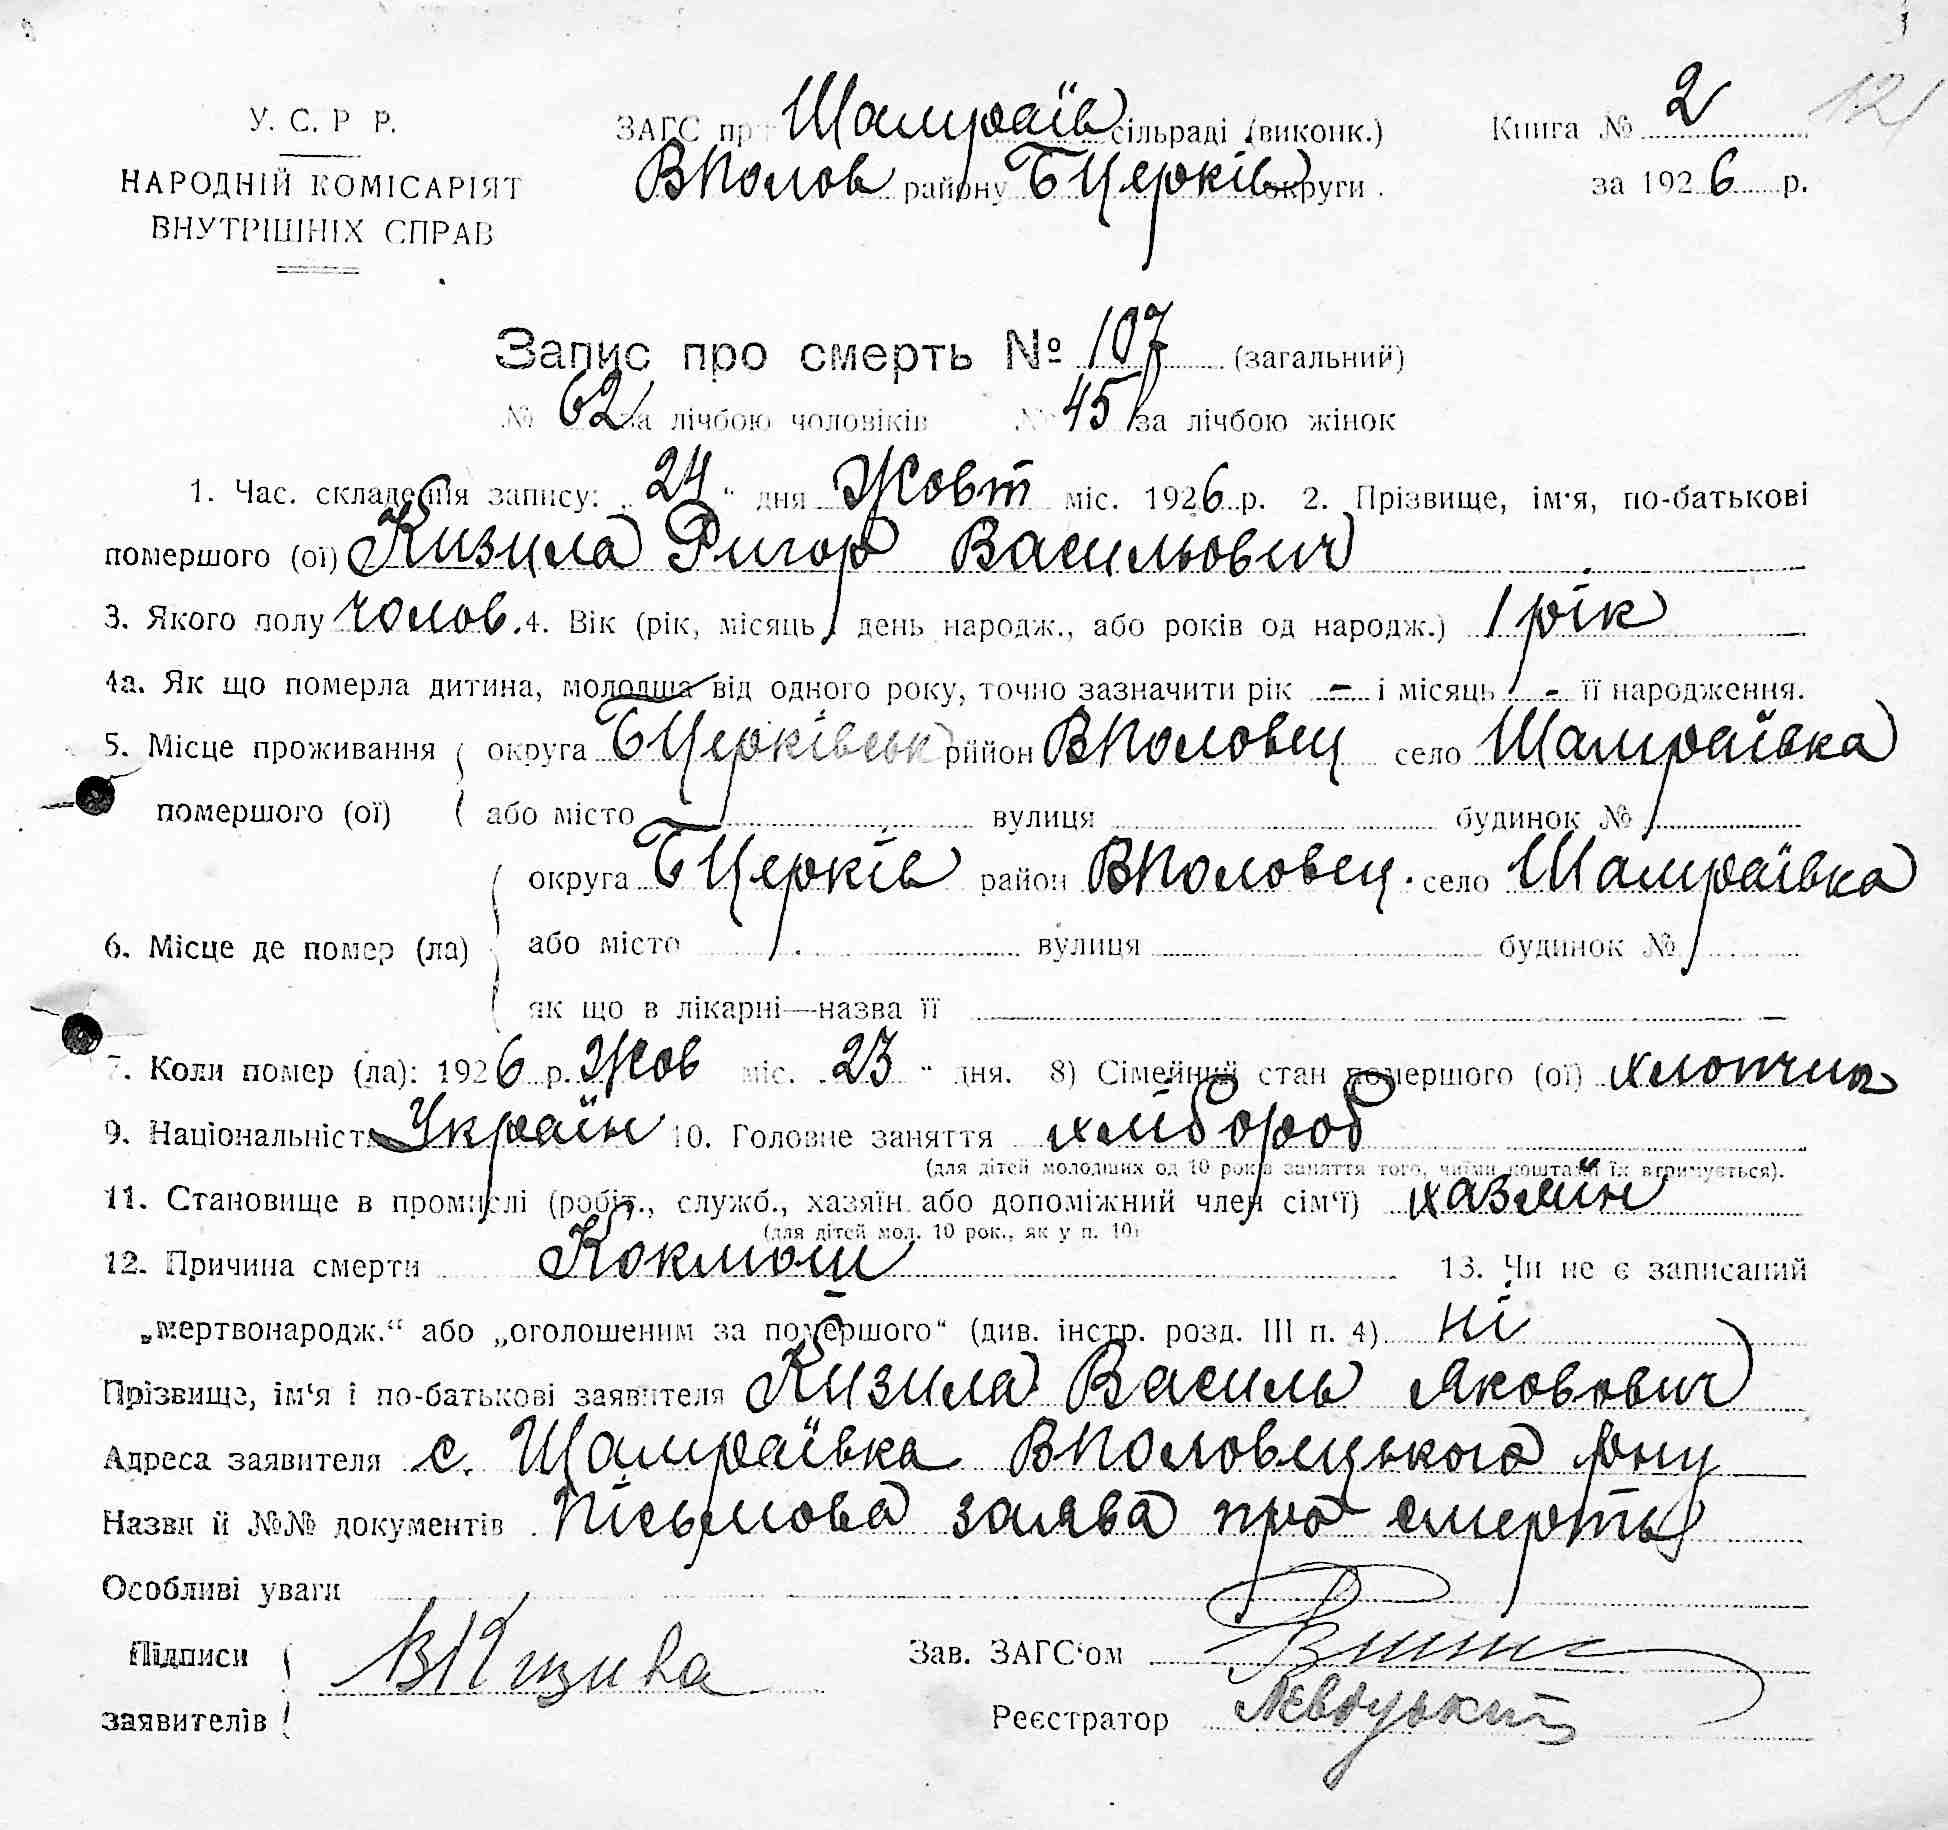 У. С. Р Р.
НАРОДНІЙ КОМІСАРІЯТ
ВНУТРІШНІХ СПРАВ
ЗАГС при Шамраїв сільраді (виконк.)
ВПолов району БЦерків округи.
Книга № 2
за 1926 р.
12
Запис про смерть № 107 (загальний)
№ 62 за лічбою чоловіків № 45 за лічбою жінок
1. Час. складення запису: 24 " дня Жовт міс. 1926 р. 2. Прізвище, ім'я, по-батькові
помершого (ої) Кизила Григор Васильович
3. Якого полу чолов. 4. Вік (рік, місяць, день народж., або років од народж.) 1 рік
4а. Як що померла дитина, молодша від одного року, точно зазначити рік - і місяць - її народження.
5. Місце проживання помершого (ої) округа БЦерківськ район ВПоловец село Шамраївка
або місто вулиця будинок №
6. Місце де помер (ла) округа БЦерків район ВПоловец. село Шамраївка
або місто вулиця будинок №
як що в лікарні—назва її
7. Коли помер (ла): 1926 р. Жов міс. 23 " дня. 8) Сімейний стан помершого (ої) хлопчик
9. Національність Україн 10. Головне заняття хлібороб
(для дітей молодших од 10 років заняття того, чиїми коштами їх втримується).
11. Становище в промислі (робіт., служб., хазяїн або допоміжний член сім'ї) хазяїн
(для дітей мол. 10 рок., як у п. 10)
12. Причина смерти Коклюш 13. Чи не є записаний
„мертвонародж.“ або „оголошеним за помершого“ (див. інстр. розд. III п. 4) ні
Прізвище, ім'я і по-батькові заявителя Кизила Василь Якович
Адреса заявителя с. Шамраївка ВПоловецького рну
Назви й №№ документів Пісьмова заява про смерть
Особливі уваги
Підписи заявителів ВКизила
Зав. ЗАГС'ом
Реєстратор